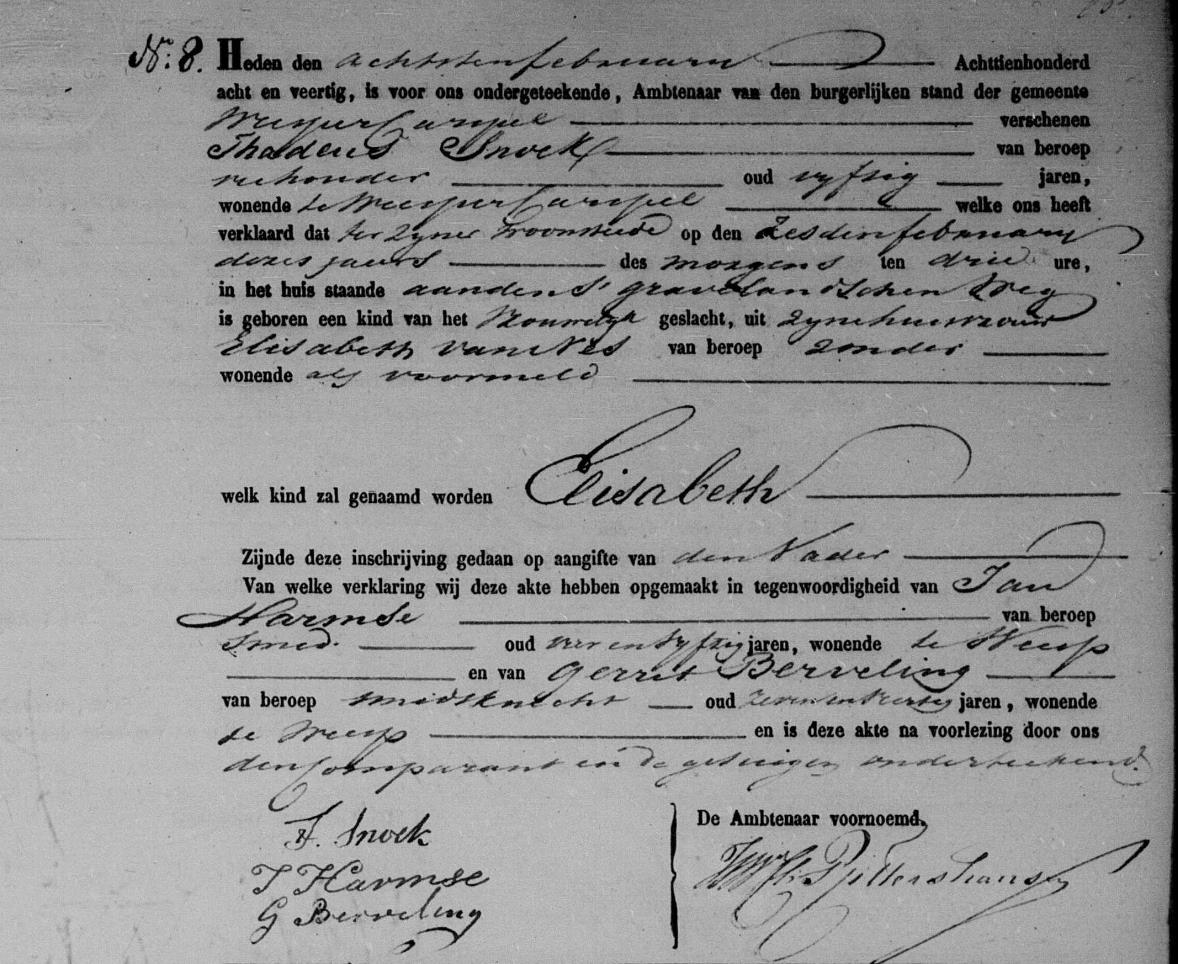 No: 8. Heden den achtsten february Achttienhonderd
acht en veertig, is voor ons ondergeteekende, Ambtenaar van den burgerlijken stand der gemeente
Weesper Carspel verschenen
Thadeus Snoek van beroep
veehouder oud vyftig jaren,
wonende te Weesper Carspel welke ons heeft
verklaard dat ter zyner woonstede op den zesden february
dezes jaars des morgens ten drie ure,
in het huis staande aan den S' gravelandschen Weg
is geboren een kind van het Vrouwelyk geslacht, uit zyne huisvrouw
Elisabeth van Nes van beroep zonder
wonende als voormeld
welk kind zal genaamd worden Elisabeth
Zijnde deze inschrijving gedaan op aangifte van den Vader
Van welke verklaring wij deze akte hebben opgemaakt in tegenwoordigheid van Jan
Harmse van beroep
Smed. oud vier en vyftig jaren, wonende te Weesp
en van Gerrit Berveling
van beroep smidsknecht oud zeven en veertig jaren, wonende
te Weesp en is deze akte na voorlezing door ons
den Comparant en de getuigen onderteekend.
T. Snoek
J Harmse
G Berveling
De Ambtenaar voornoemd,